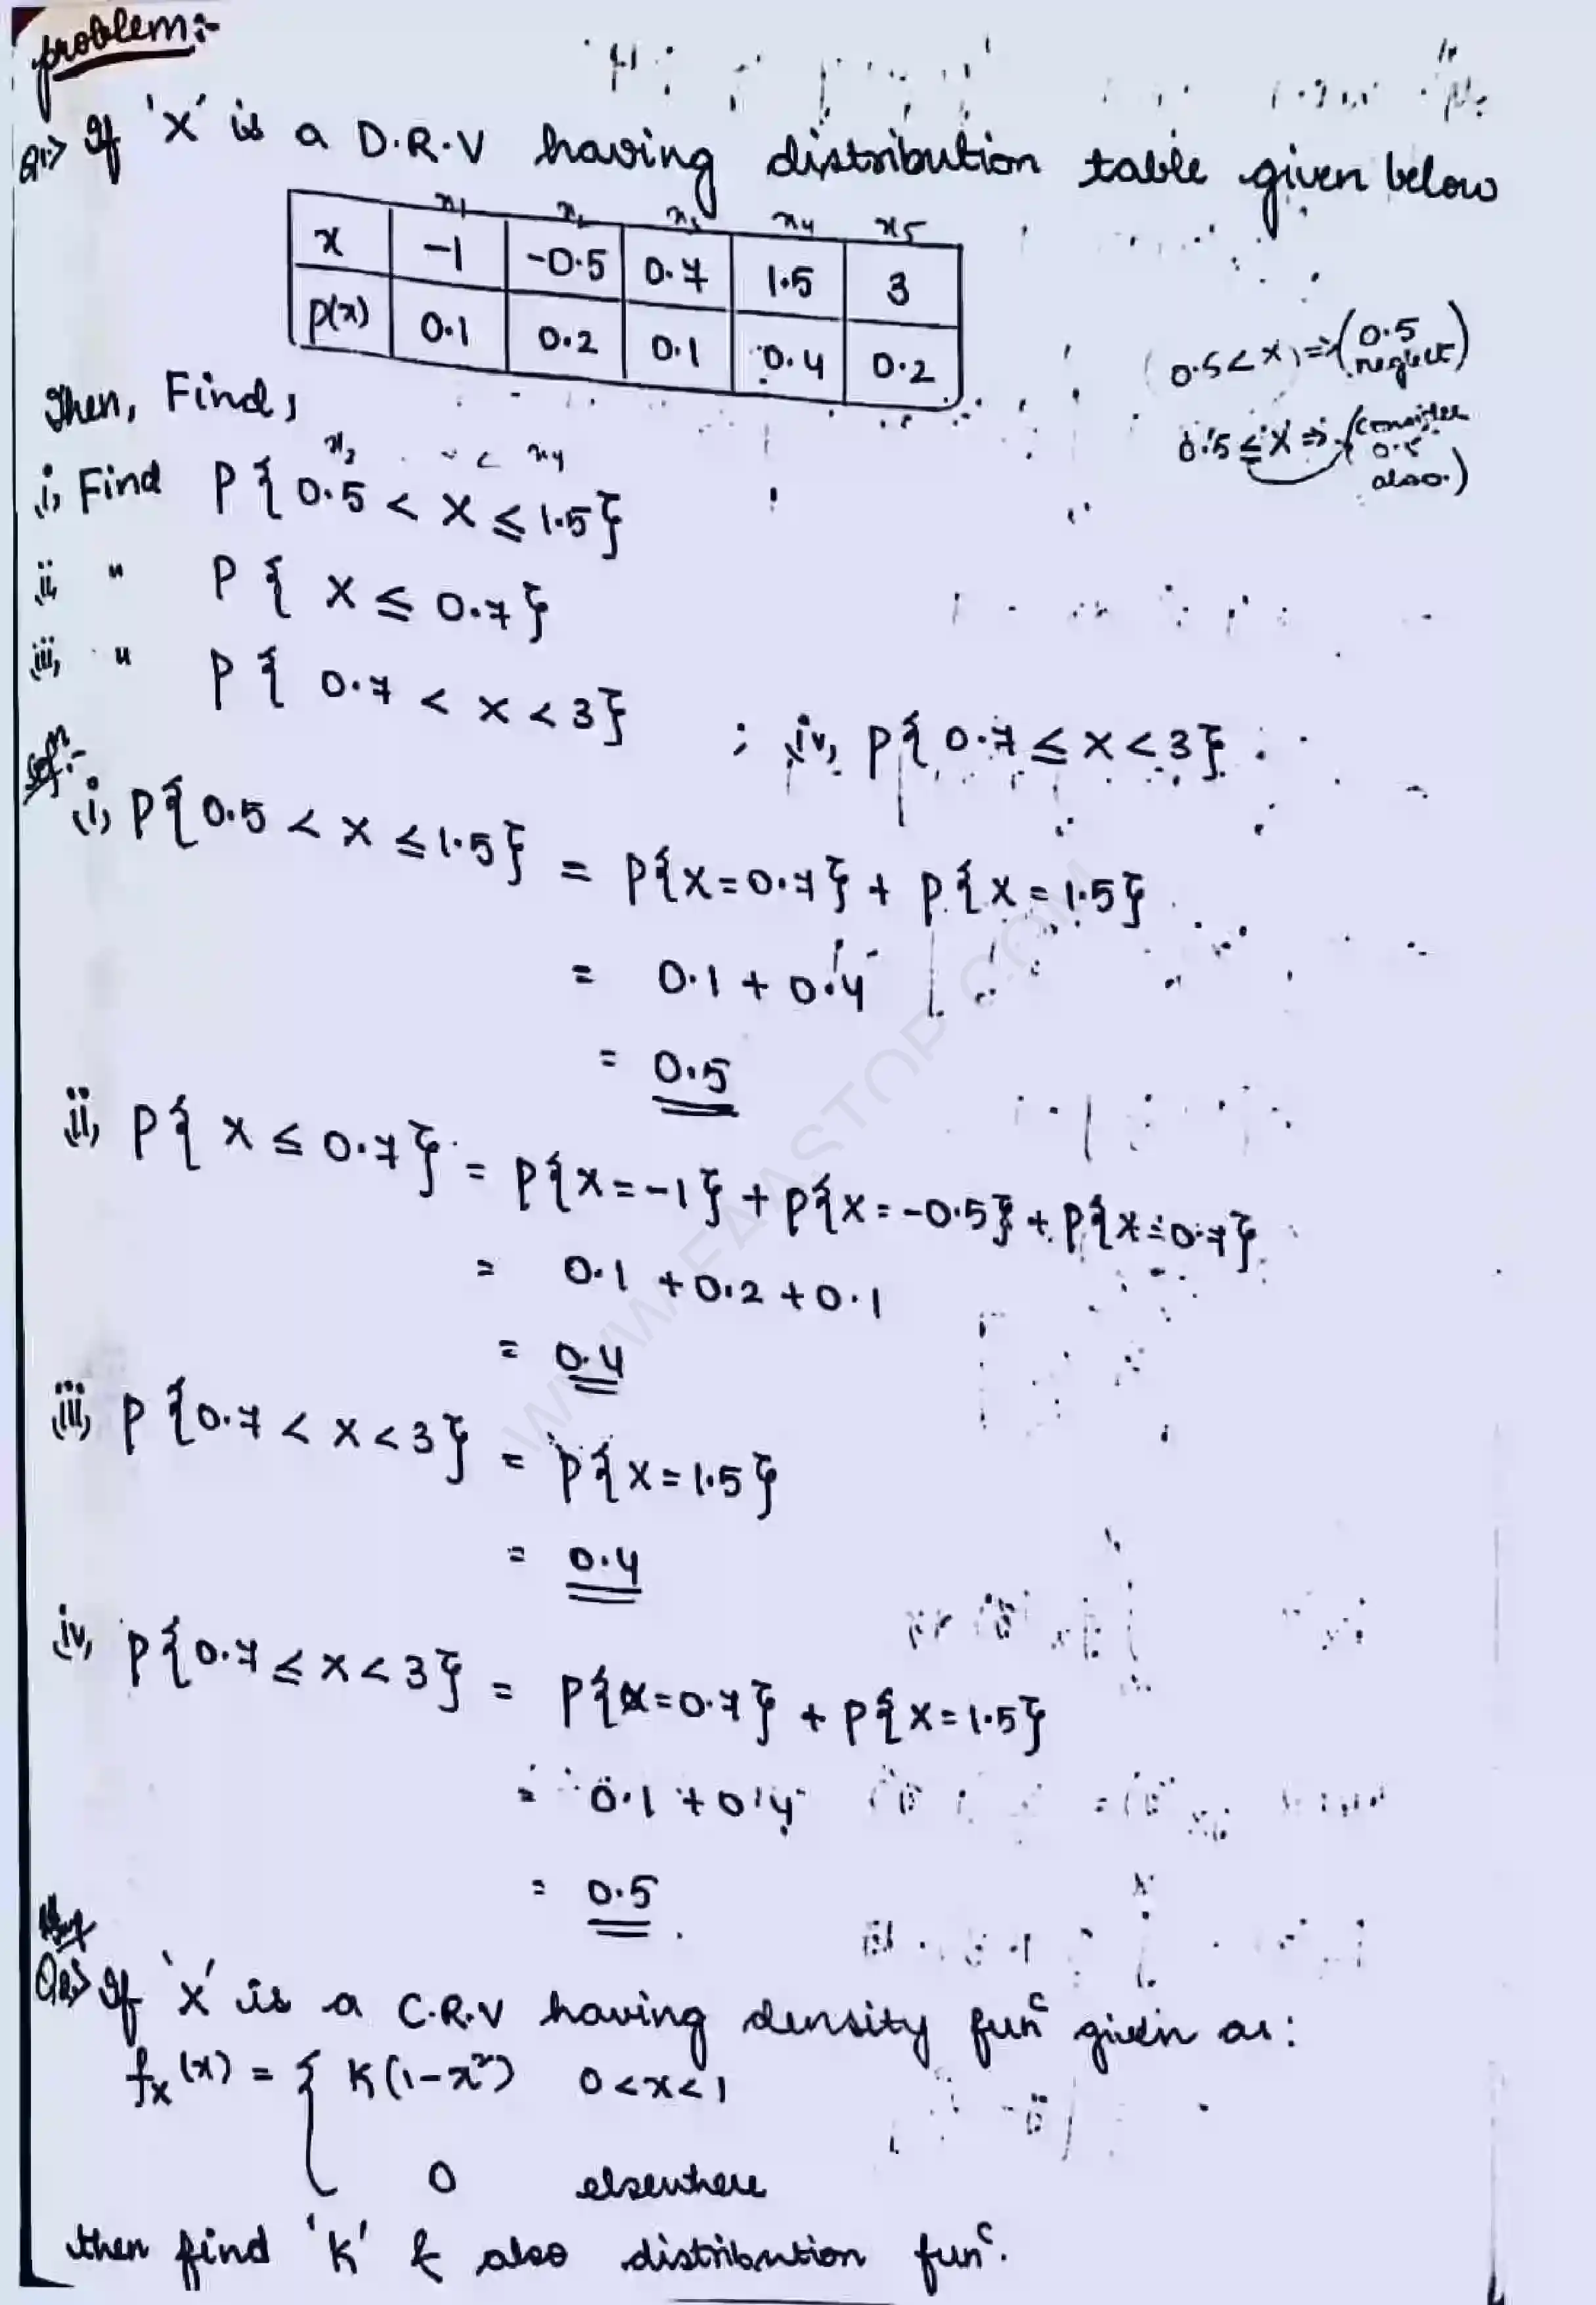 problem:-
Q1> If 'X' is a D.R.V having distribution table given below
x1 x2 x3 x4 x5
x -1 -0.5 0.7 1.5 3
P(x) 0.1 0.2 0.1 0.4 0.2
0.5 < X ) => (0.5 neglect)
0.5 ≤ X => (consider 0.5 also.)
Then, Find,
i, Find P{ 0.5 < X ≤ 1.5}
ii, " P{ X ≤ 0.7}
iii, " P{ 0.7 < X < 3} ; iv, P{ 0.7 ≤ X < 3}
Sol:-
(i) P{0.5 < X ≤ 1.5} = P{X = 0.7} + P{X = 1.5}
= 0.1 + 0.4
= 0.5
ii, P{ X ≤ 0.7} = P{X = -1} + P{X = -0.5} + P{X = 0.7}
= 0.1 + 0.2 + 0.1
= 0.4
iii, P{0.7 < X < 3} = P{X = 1.5}
= 0.4
iv, P{0.7 ≤ X < 3} = P{X = 0.7} + P{X = 1.5}
= 0.1 + 0.4
= 0.5
Q2> If 'X' is a C.R.V having density funᶜ given as:
fX(x) = { K(1-x²) 0 < x < 1
0 elsewhere
then find 'K' & also distribution funᶜ.